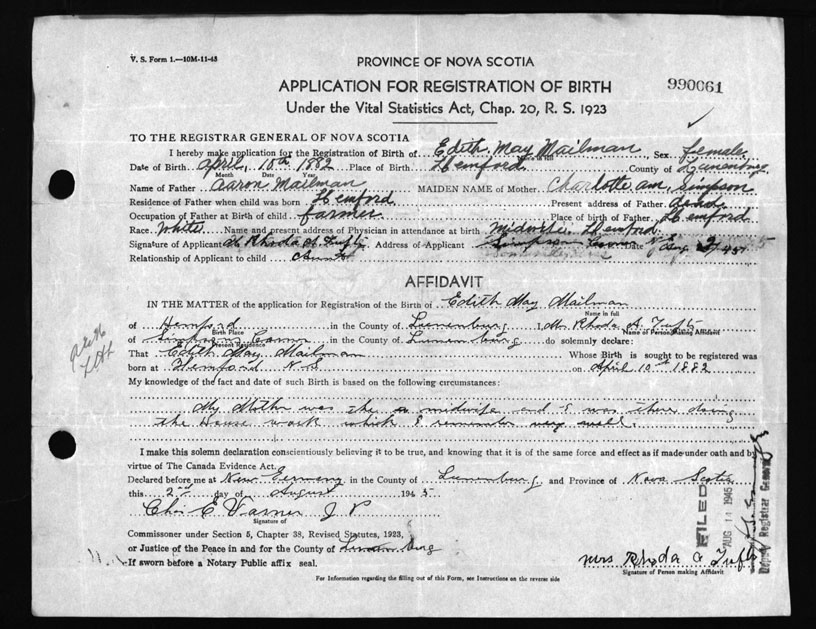 V. S. Form 1.—10M-11-43
PROVINCE OF NOVA SCOTIA
APPLICATION FOR REGISTRATION OF BIRTH
990061
Under the Vital Statistics Act, Chap. 20, R. S. 1923
TO THE REGISTRAR GENERAL OF NOVA SCOTIA
I hereby make application for the Registration of Birth of Edith May Mailman, Sex female
Name in full
Date of Birth April, 10th 1882 Place of Birth Hemford County of Lunenburg
Month Day Year
Name of Father Aaron Mailman MAIDEN NAME of Mother Charlotte ann, Simpson
Residence of Father when child was born Hemford Present address of Father dead
Occupation of Father at Birth of child farmer Place of birth of Father Hemford
Race White Name and present address of Physician in attendance at birth Midwife Hemford
Signature of Applicant Rhoda A Tufts Address of Applicant Simpson Date Aug 2/45
Relationship of Applicant to child Aunt
AFFIDAVIT
IN THE MATTER of the application for Registration of the Birth of Edith May Mailman
Name in full
of Hemford in the County of Lunenburg, I, Rhoda A. Tufts
Birth Place Name of Person making Affidavit
of Simpsons Corner in the County of Lunenburg do solemnly declare:
Present Residence
That Edith May Mailman Whose Birth is sought to be registered was
born at Hemford N.S. on April 10th 1882
My knowledge of the fact and date of such Birth is based on the following circumstances:
My Mother was the midwife and I was there doing
the House work which I remember very well.
I make this solemn declaration conscientiously believing it to be true, and knowing that it is of the same force and effect as if made under oath and by
virtue of The Canada Evidence Act.
Declared before me at New Germany in the County of Lunenburg, and Province of Nova Scotia
this 2nd day of August 1945
Chas E Varner J P
Signature of
Commissioner under Section 5, Chapter 38, Revised Statutes, 1923,
or Justice of the Peace in and for the County of Lunenburg
If sworn before a Notary Public affix seal.
Mrs Rhoda A Tufts
Signature of Person making Affidavit
For Information regarding the filling out of this Form, see Instructions on the reverse side
FILED
AUG 14 1945
Deputy Registrar General